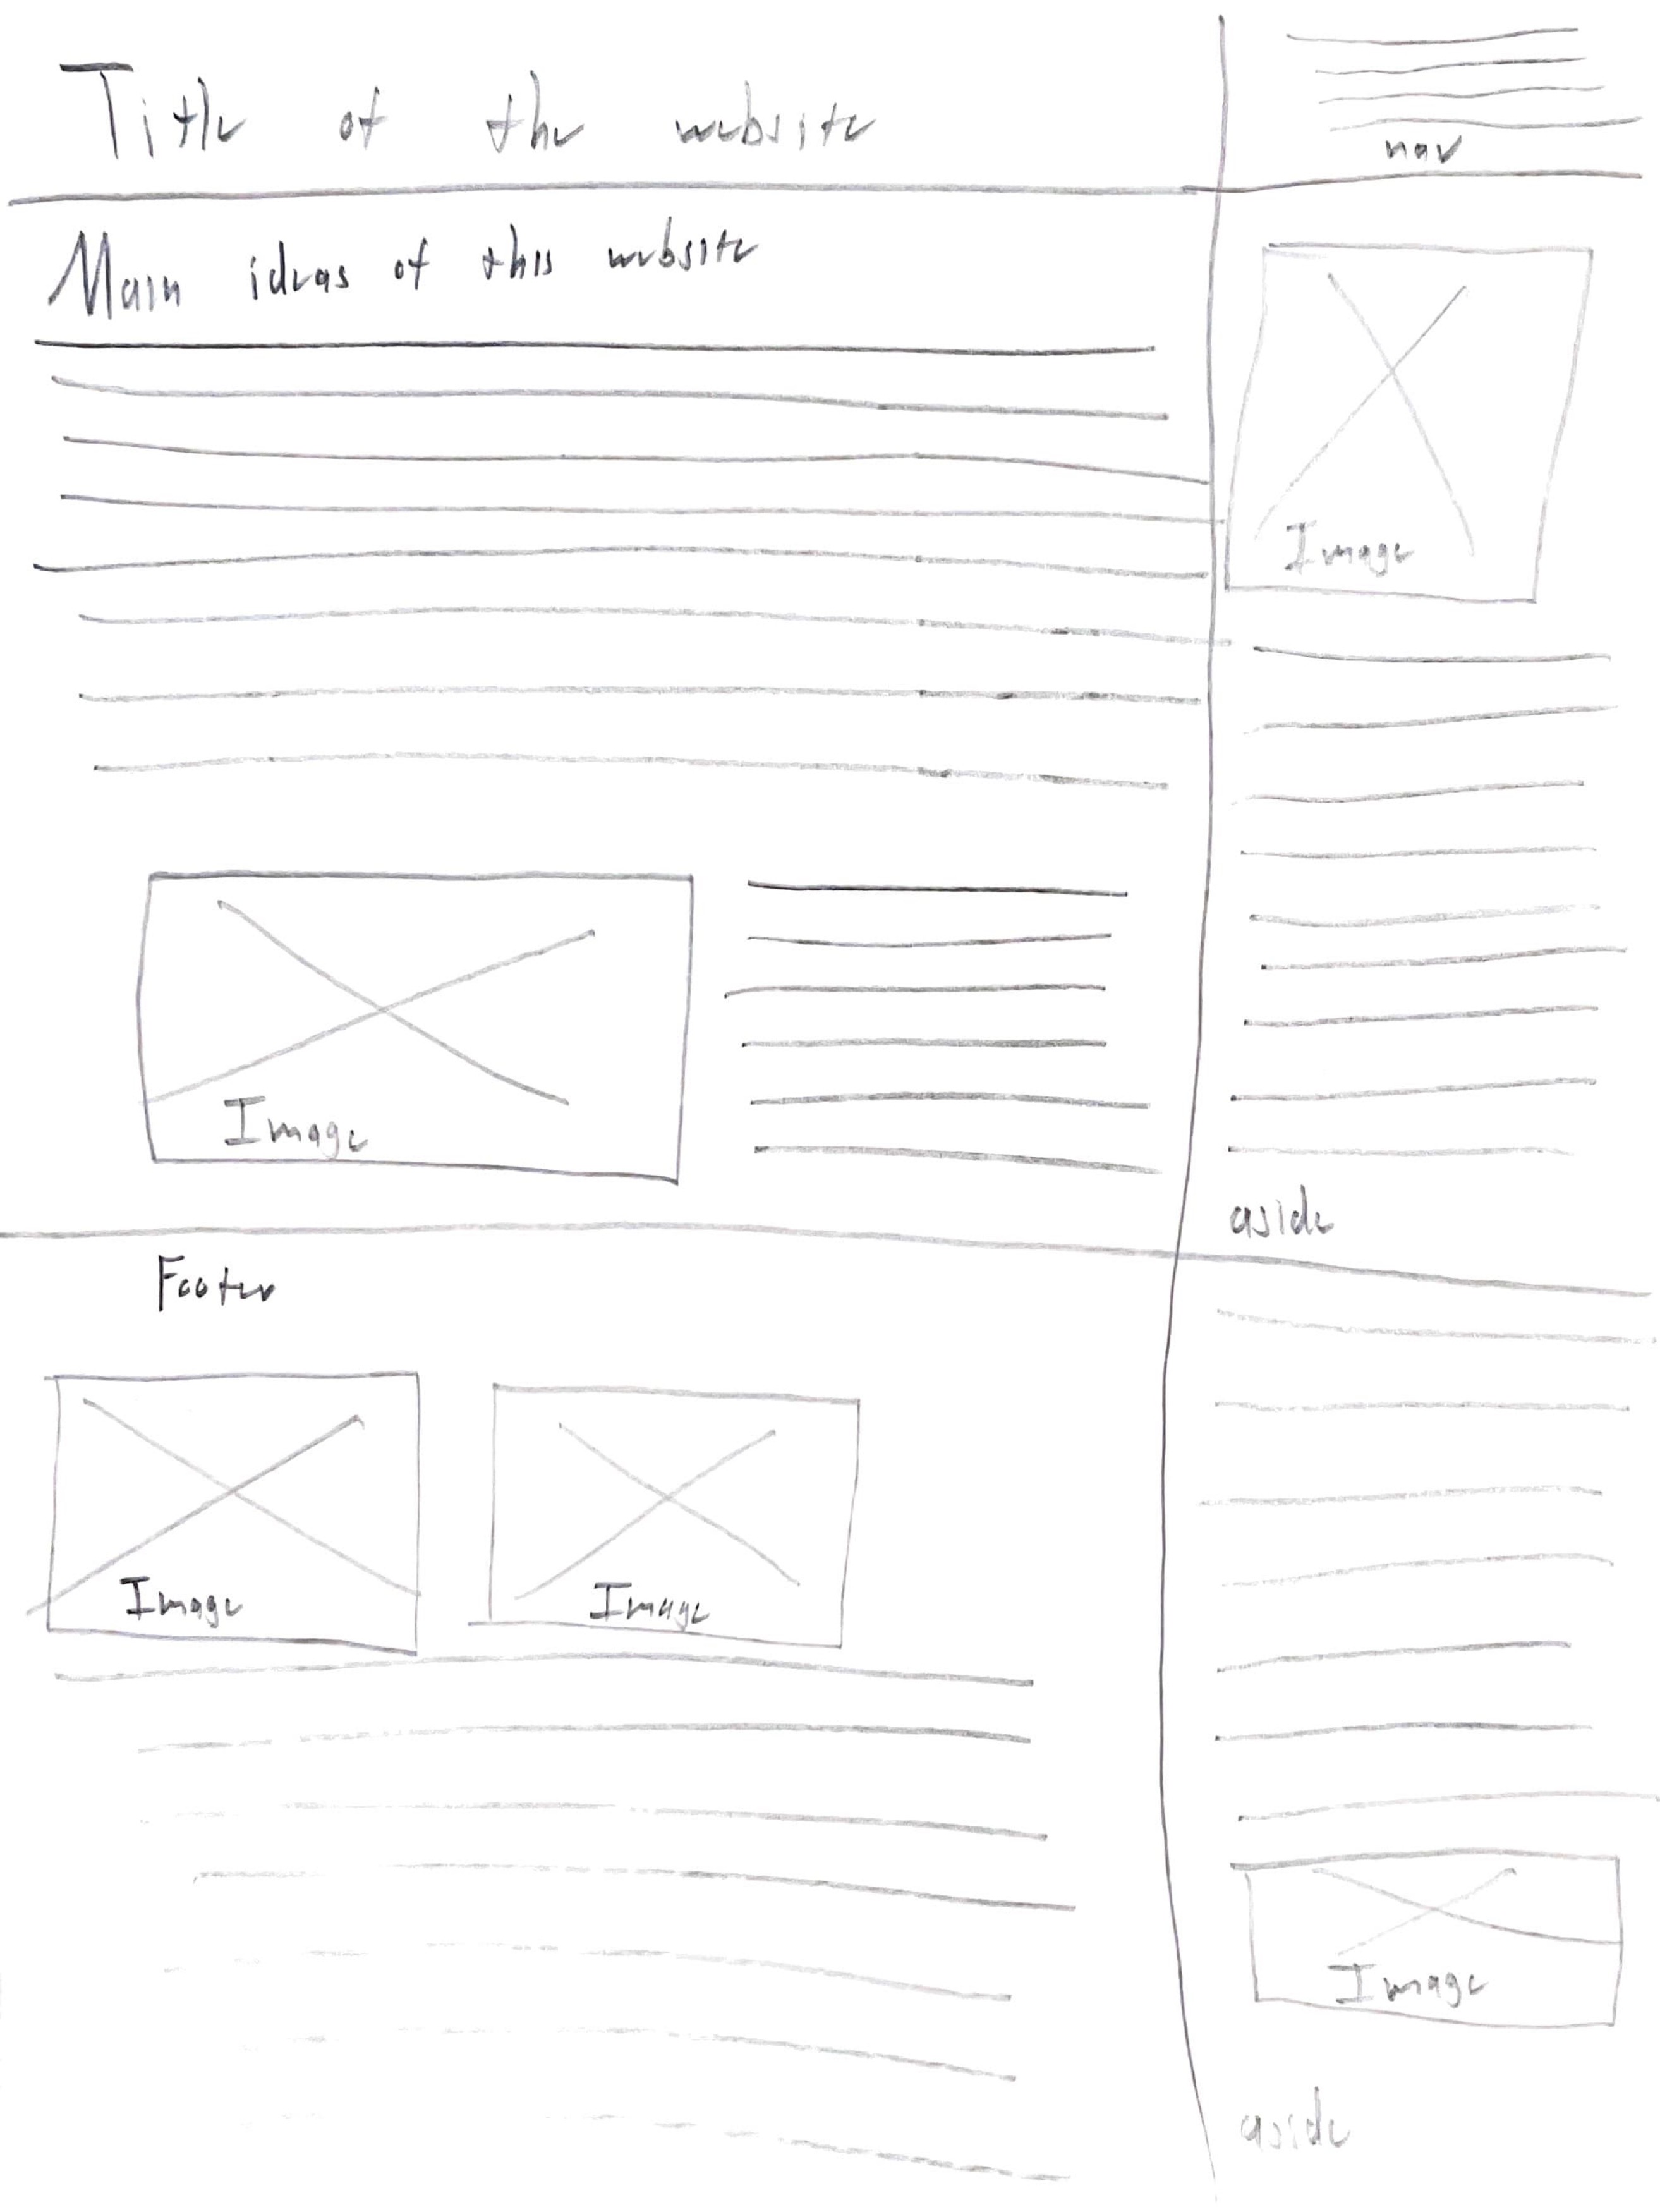 Title of the website
nav
Main ideas of this website
Image
Image
aside
Footer
Image
Image
Image
aside